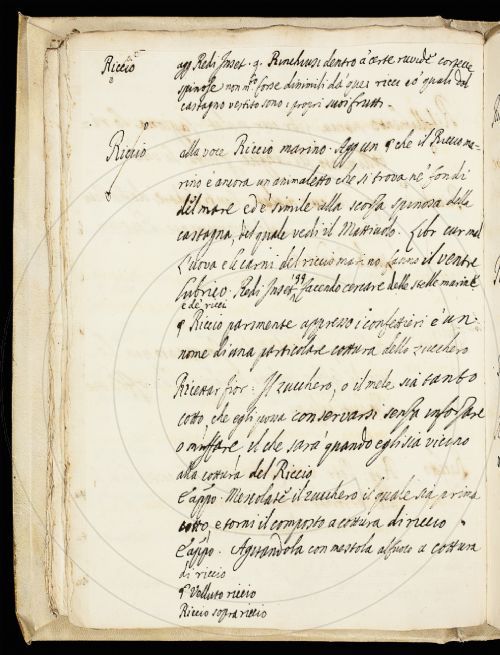 Riccio agg. Redi Inset. 9. Rinchiusi dentro a certe ruvide cortecce
spinose non m.to forse dissimili da quei ricci co' quali dal
castagno vestito sono i propri suoi frutti
Riccio alla voce Riccio marino. Agg un § che il Riccio ma-
rino è ancora un animaletto che si trova ne' fondi
del mare ed è simile alla scorza spinosa della
castagna, del quale vedi il Mattiuolo. Libr cur mal
L'uova e le carni del riccio marino fanno il ventre
lubrico. Redi Inset 199 facendo cercare delle stelle marine
e de' ricci
§ Riccio parimente appresso i confettieri è un
nome di una particolare cottura dello zucchero
Ricettar fior. Il zucchero, o il mele sia tanto
cotto, che egli possa conservarsi senza inforzare
o muffare il che sarà quando egli sia vicino
alla cottura del Riccio
E appo. Mescolate il zucchero il quale sia prima
cotto, e torni il composto a cottura di riccio
E appo. Agitandola con mestola al fuoco a cottura
di riccio
§ Velluto riccio
Riccio sopra riccio